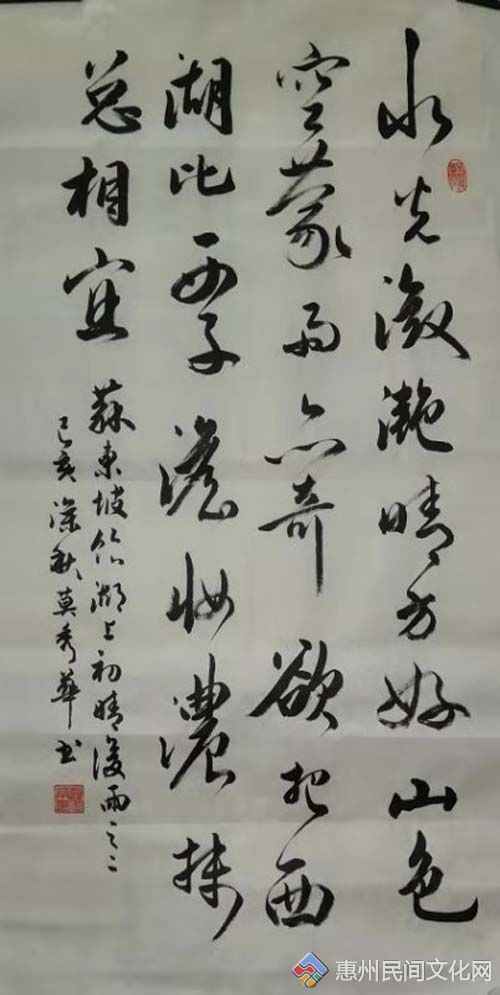 水光潋滟晴方好山色
空蒙雨亦奇欲把西
湖比西子澹妆濃抹
总相宜
蘇東坡饮湖上初晴後雨之二
己亥深秋莫秀華书
惠州民间文化网